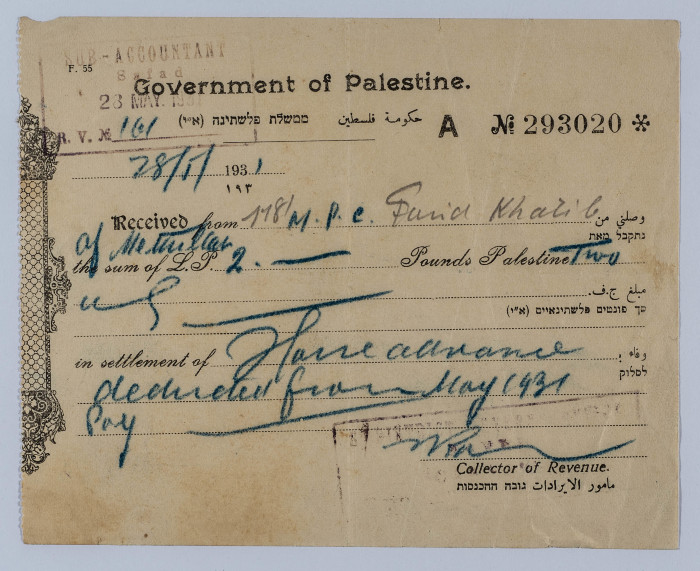 SUB-ACCOUNTANT
Safad
F. 55
Government of Palestine.
28 MAY. 1931
R. V. № 161
ממשלת פלשתינה (א״י) حكومة فلسطين
A № 293020 *
28/5/ 1931
١٩٣
Received from 1181 M. P. C. Farid Khatib وصلني من
נתקבל מאת
of Metullah
the sum of L.P. 2. — Pounds Palestine Two
مبلغ ج.ف.
סך פונטים פלשתינאיים (א״י)
in settlement of Horse advance وفاء
לסלוק
deducted from May 1931
Pay
Collector of Revenue.
مأمور الايرادات גובה ההכנסות